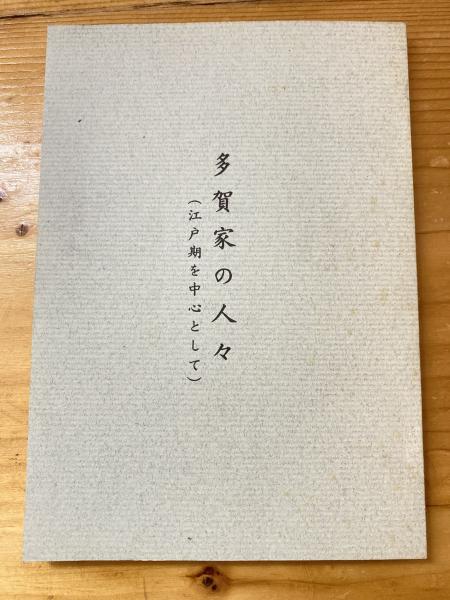 多賀家の人々
(江戸期を中心として)